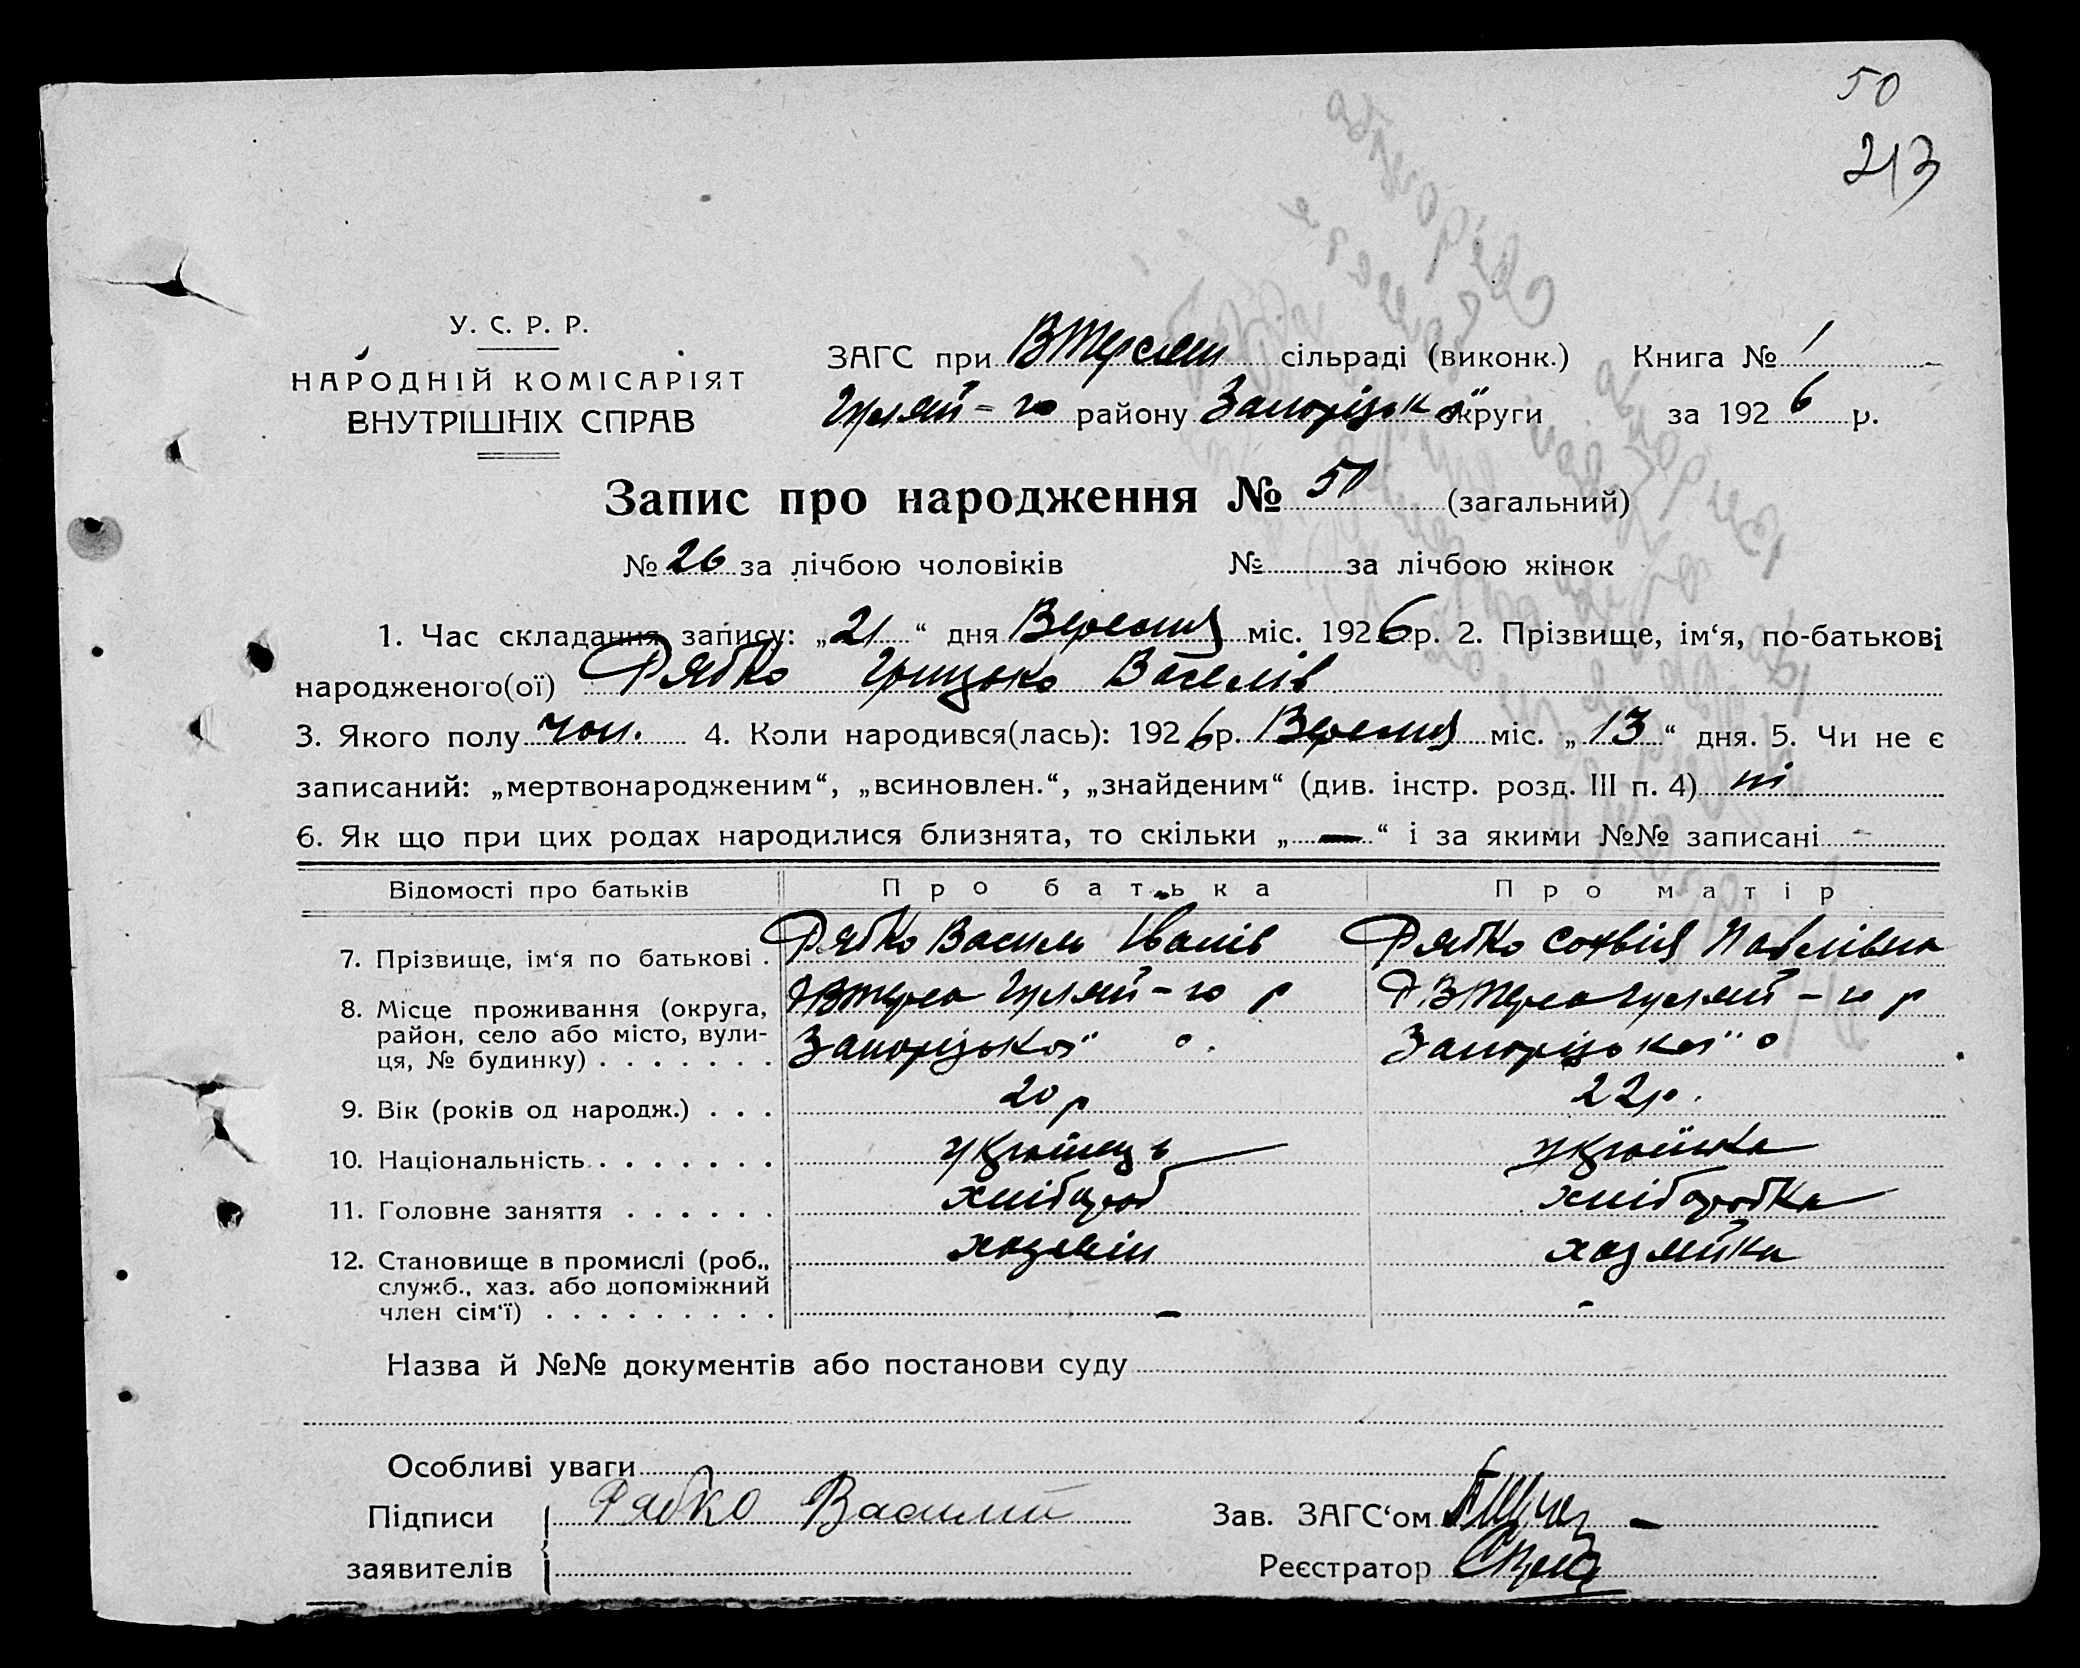 50
213
У. С. Р. Р.
НАРОДНІЙ КОМІСАРІЯТ
ВНУТРІШНІХ СПРАВ
ЗАГС при ВТерсян сільраді (виконк.) Книга № 1
Гуляй-го району Запорізької округи за 1926 р.
Запис про народження № 50 (загальний)
№ 26 за лічбою чоловіків № за лічбою жінок
1. Час складання запису: „21“ дня Вересня міс. 1926 р. 2. Прізвище, ім‘я, по-батькові
народженого(ої) Рябко Грицько Василів
3. Якого полу чол. 4. Коли народився(лась): 1926 р. Вересня міс. „13“ дня. 5. Чи не є
записаний: „мертвонародженим“, „всиновлен.“, „знайденим“ (див. інстр. розд. III п. 4) ні
6. Як що при цих родах народилися близнята, то скільки „—“ і за якими №№ записані -
Відомості про батьків Про батька Про матір
7. Прізвище, ім‘я по батькові . Рябко Василь Іванів Рябко Софвія Павлівна
8. Місце проживання (округа, ВТерса Гуляй-го р ВТерса Гуляй-го р
район, село або місто, вули-
ця, № будинку) . . . . . . . Запорізької о. Запорізької о
9. Вік (років од народж.) . . . 20 р 22 р.
10. Національність . . . . . . . українець українка
11. Головне заняття . . . . . . хлібороб хліборобка
12. Становище в промислі (роб., хазяїн хазяйка
служб., хаз. або допоміжний
член сім‘ї) . . . . . . . . . - -
Назва й №№ документів або постанови суду
Особливі уваги
Підписи Рябко Василий Зав. ЗАГС‘ом
заявителів Реєстратор